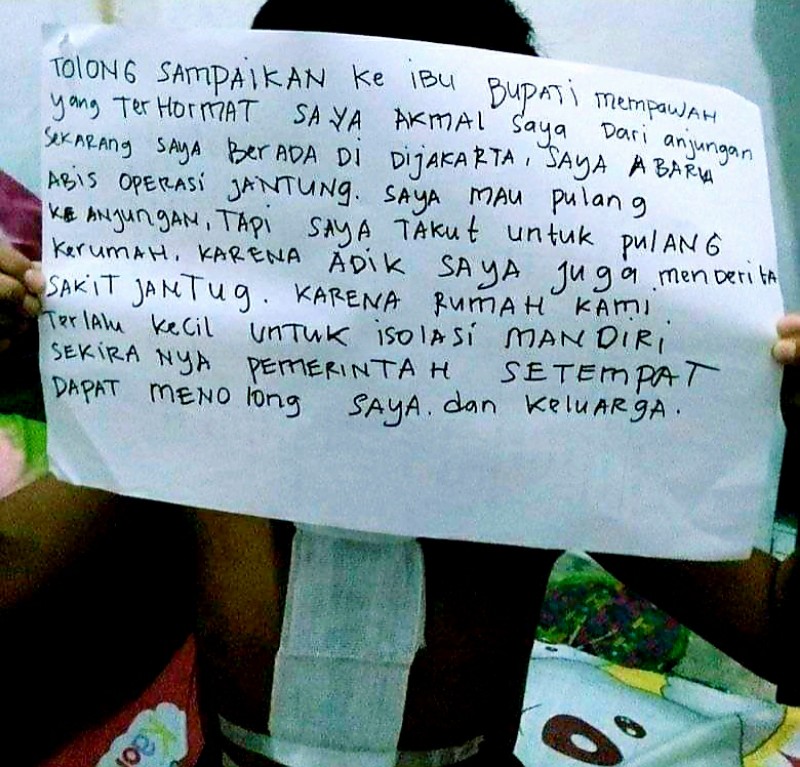 TOLONG SAMPAIKAN KE IBU BUPATI MEMPAWAH
yang TERHORMAT SAYA AKMAL Saya Dari anjungan
SEKARANG SAYA BERADA DI DIJAKARTA, SAYA A BARU
ABIS OPERASI JANTUNG. SAYA MAU pulang
KE ANJUNGAN, TAPI SAYA TAKUT untuk PULANG
KERUMAH, KARENA ADIK SAYA JUGA menderita
SAKIT JANTUG. KARENA RUMAH KAMI
Terlalu Kecil UNTUK ISOLASI MANDIRI
SEKIRA NYA PEMERINTAH SETEMPAT
DAPAT MENO long SAYA. dan KELUARGA.